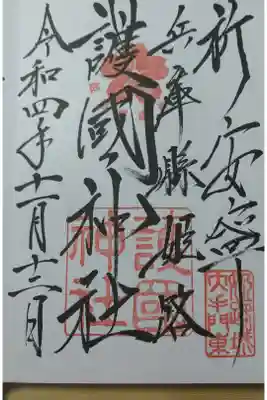 祈安寧
兵庫縣姫路
護國神社
令和四年十一月十三日
護國神社
姫路城大手門東